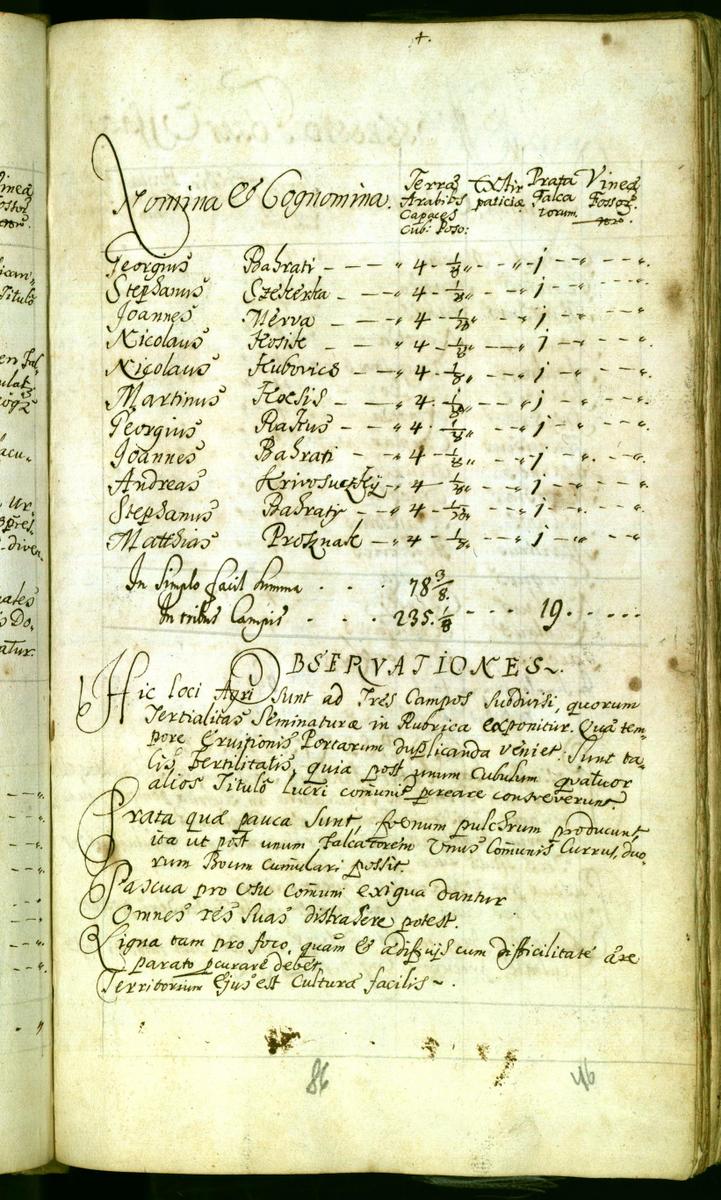 4.
Nomina & Cognomina.
Terræ Arabiles Capaces Cub: Poso:
Extirpaticiæ
Prata Falcatorum.
Vineæ Fossor.
Georgius Bahrati — — „ 4 1/8 „ — „ 1 — — „
Stephanus Szekerka — — „ 4 1/8 „ — „ 1 — — „
Joannes Merva — — „ 4 1/8 „ — „ 1 — — „
Nicolaus Kosik — — „ 4 1/8 „ — „ 1 — — „
Nicolaus Hubovics — — „ 4 1/8 „ — „ 1 — — „
Martinus — — „ 4 1/8 „ — „ 1 — — „
Georgius Raktus — — „ 4 1/8 „ — „ 1 — — „
Joannes Bahrati — — „ 4 1/8 „ — „ 1 — — „
Andreas Krivosuczky — „ 4 1/8 „ — „ 1 — — „
Stephanus Bahraty — — „ 4 1/8 „ — „ 1 — — „
Matthias — „ 4 1/8 „ — „ 1 — — „
In Simplo facit Summa . . . 78 3/8.
In tribus Campis . . . 235. 1/8 . . . 19. . . . .
OBSERVATIONES~.
Hic loci Agri Sunt ad Tres Campos Subdivisi, quorum
Tertialitas Seminaturæ in Rubrica exponitur. Quæ tem-
pore Eruitionis Portarum duplicanda veniet. Sunt ta-
lis Fertilitatis, quia post unum Cubulum quatuor
alios Titulo Lucri comunis pcreare consveverunt.
Prata quæ pauca Sunt, fœnum pulchrum producunt,
ita ut post unum Falcatorem Unus Comunis Currus, duo-
rum Boum Cumulari possit.
Pascua pro Usu Comuni exigua dantur
Omnes res Suas distrahere potest.
Ligna tam pro foco, quam & ædificijs cum difficilitate ære
parato pcurare debet.
Territorium Ejus est Culturæ facilis~.
86
46